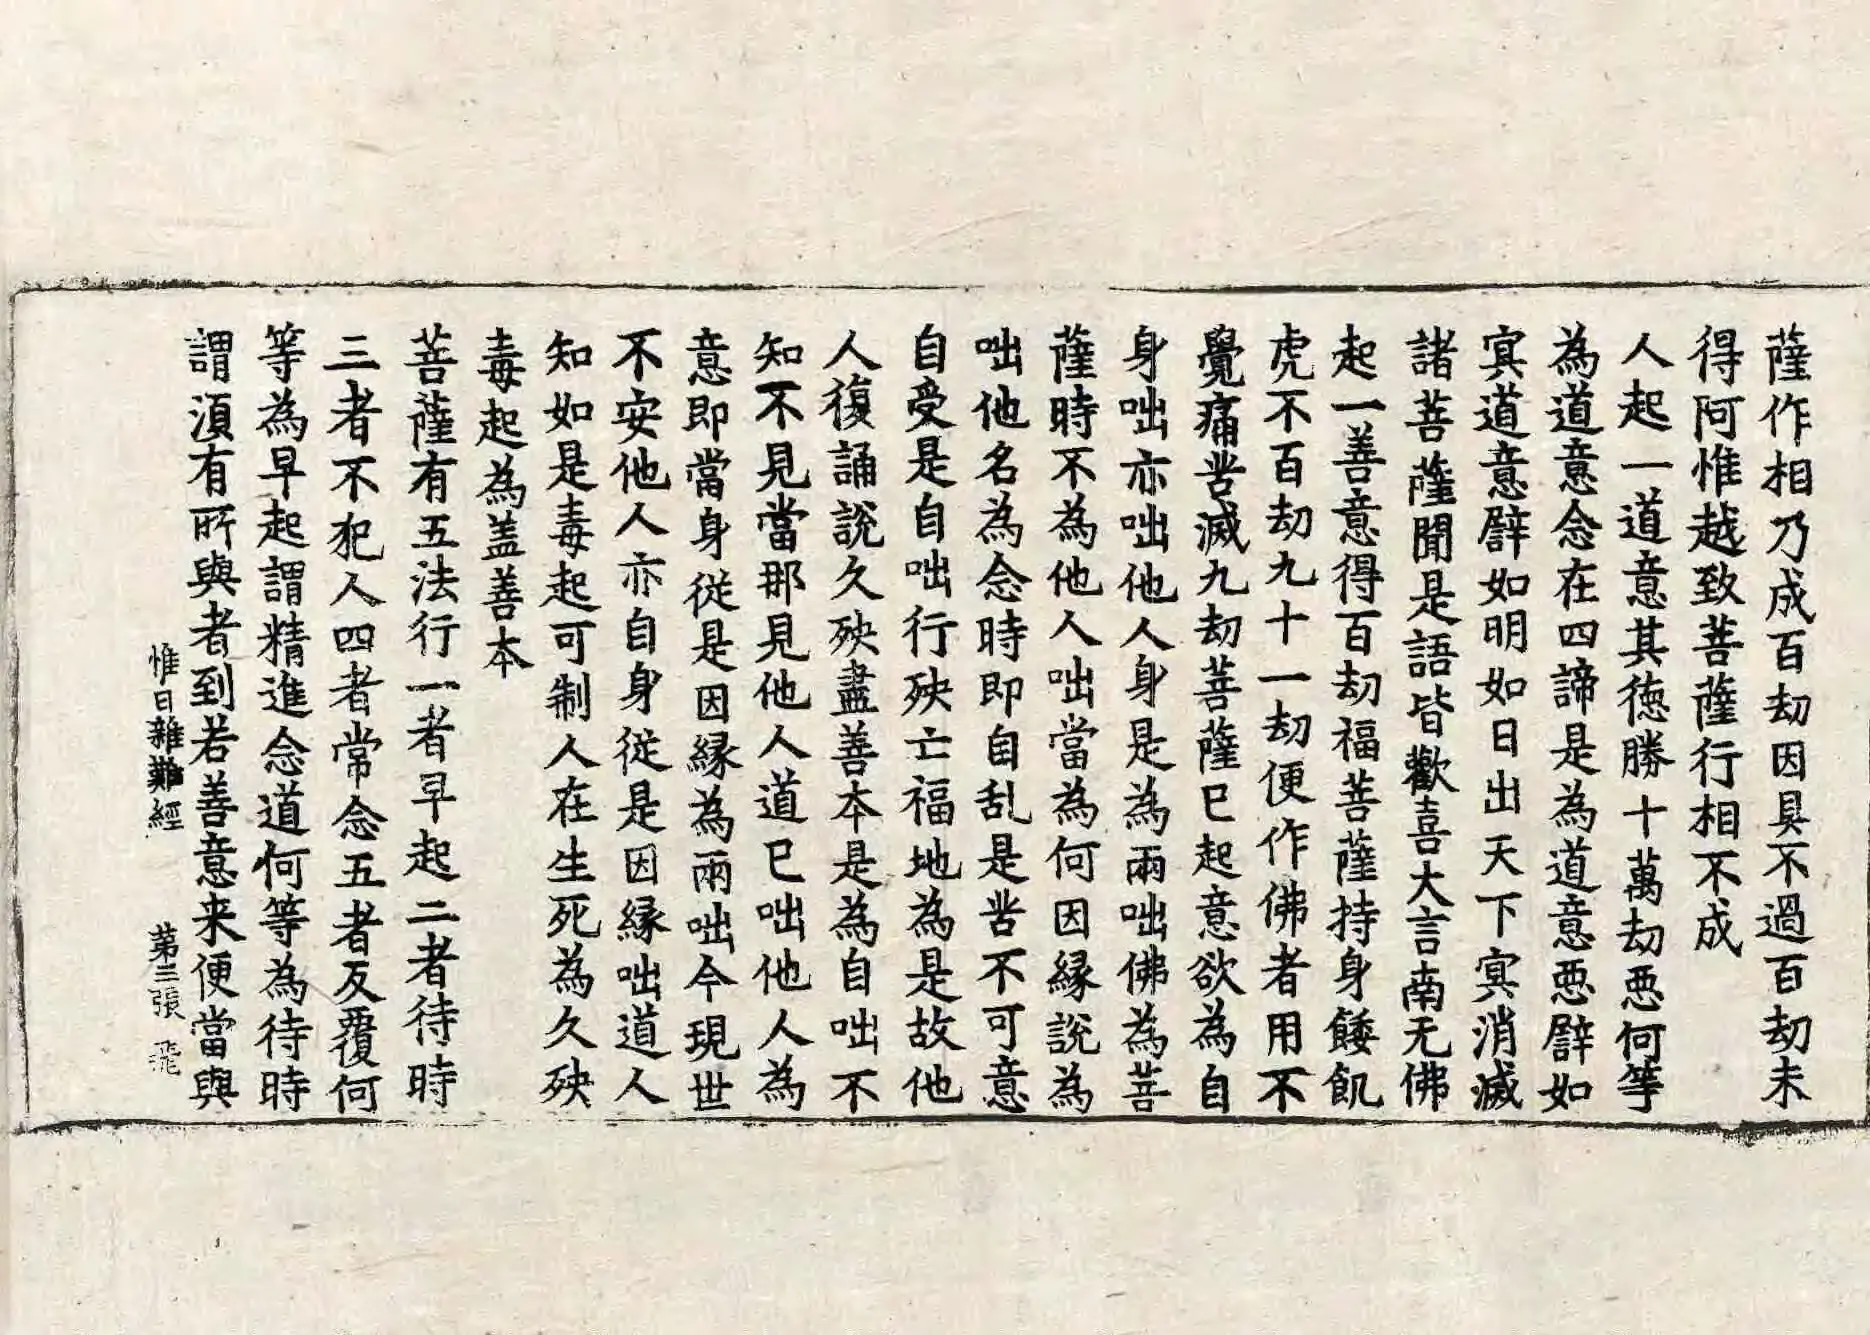 薩作相乃成百劫因具不過百劫未
得阿惟越致菩薩行相不成
人起一道意其德勝十萬劫惡何等
為道意念在四諦是為道意惡譬如
冥道意譬如明如日出天下冥消滅
諸菩薩聞是語皆歡喜大言南无佛
起一善意得百劫福菩薩持身餧飢
虎不百劫九十一劫便作佛者用不
覺痛苦滅九劫菩薩已起意欲為自
身咄亦咄他人身是為兩咄佛為菩
薩時不為他人咄當為何因緣說為
咄他名為念時即自乱是苦不可意
自受是自咄行殃亡福地為是故他
人復誦說久殃盡善本是為自咄不
知不見當那見他人道已咄他人為
意即當身從是因緣為兩咄今現世
不安他人亦自身從是因緣咄道人
知如是毒起可制人在生死為久殃
毒起為盖善本
菩薩有五法行一者早起二者待時
三者不犯人四者常念五者反覆何
等為早起謂精進念道何等為待時
謂湏有所與者到若善意来便當與
惟日雜難經 第三張 飛